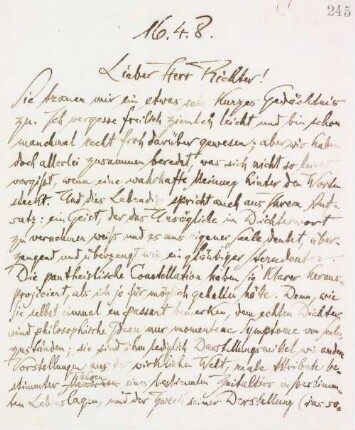 245
16.4.8.
Lieber Herr Richter!
Sie trauen mir ein etwas sehr kurzes Gedächtnis
zu. Ich vergesse freilich ziemlich leicht und bin schon
manchmal recht froh darüber gewesen; aber wir haben
doch allerlei zusammen beredet, was sich nicht so leicht
vergißt, wenn eine wahrhafte Meinung hinter den Worten
steckt. Und dies Lebendige spricht auch aus Ihrem
satz: ein Geist, der das Unsägliche im Dichterwort
zu vernehmen weiß und es aus eigener Seele deutet, über-
zeugend und überzeugt wie ein gläubiger Sterndeuter.
Die pantheistische Constellation haben Sie klarer heraus-
projiciert, als ich je für möglich gehalten hätte. Denn, wie
Sie selbst einmal en passant bemerken, dem echten Dichter
sind philosophische Ideen nur momentane Symptome von
zuständen; sie sind ihm lediglich Darstellungsmittel wie andern
Vorstellungen aus der wirklichen Welt, reale Attribute be-
stimmter Figuren eines bestimmten Zeitalters in bestimm-
ten Lebenslagen, und der Zweck seiner Darstellung